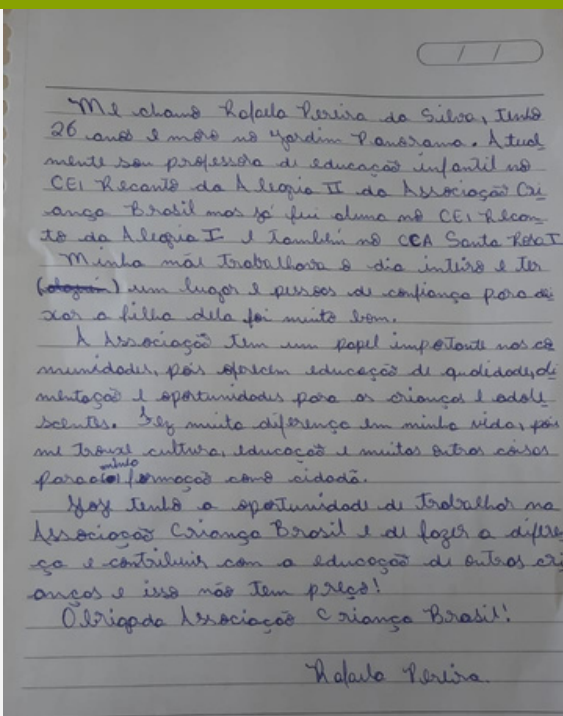 / /
Me chamo Rafaela Pereira da Silva, tenho
26 anos e moro no Jardim Panorama. Atual
mente sou professora de educação infantil no
CEI Recanto da Alegria II da Associação Cri
ança Brasil mas já fui aluna no CEI Recan
to da Alegria I e também no CCA Santa Rosa I
Minha mãe trabalhava o dia inteiro e ter
um lugar e pessoas de confiança para dei
xar a filha dela foi muito bom.
A Associação tem um papel importante nas co
munidades, pois oferecem educação de qualidade, ali
mentação e oportunidades para as crianças e adole
scentes. Fez muita diferença em minha vida, pois
me trouxe cultura, educação e muitas outras coisas
para minha formação como cidadã.
Hoje tenho a oportunidade de trabalhar na
Associação Criança Brasil e de fazer a diferen
ça e contribuir com a educação de outras cri
anças e isso não tem preço!
Obrigada Associação Criança Brasil!
Rafaela Pereira.